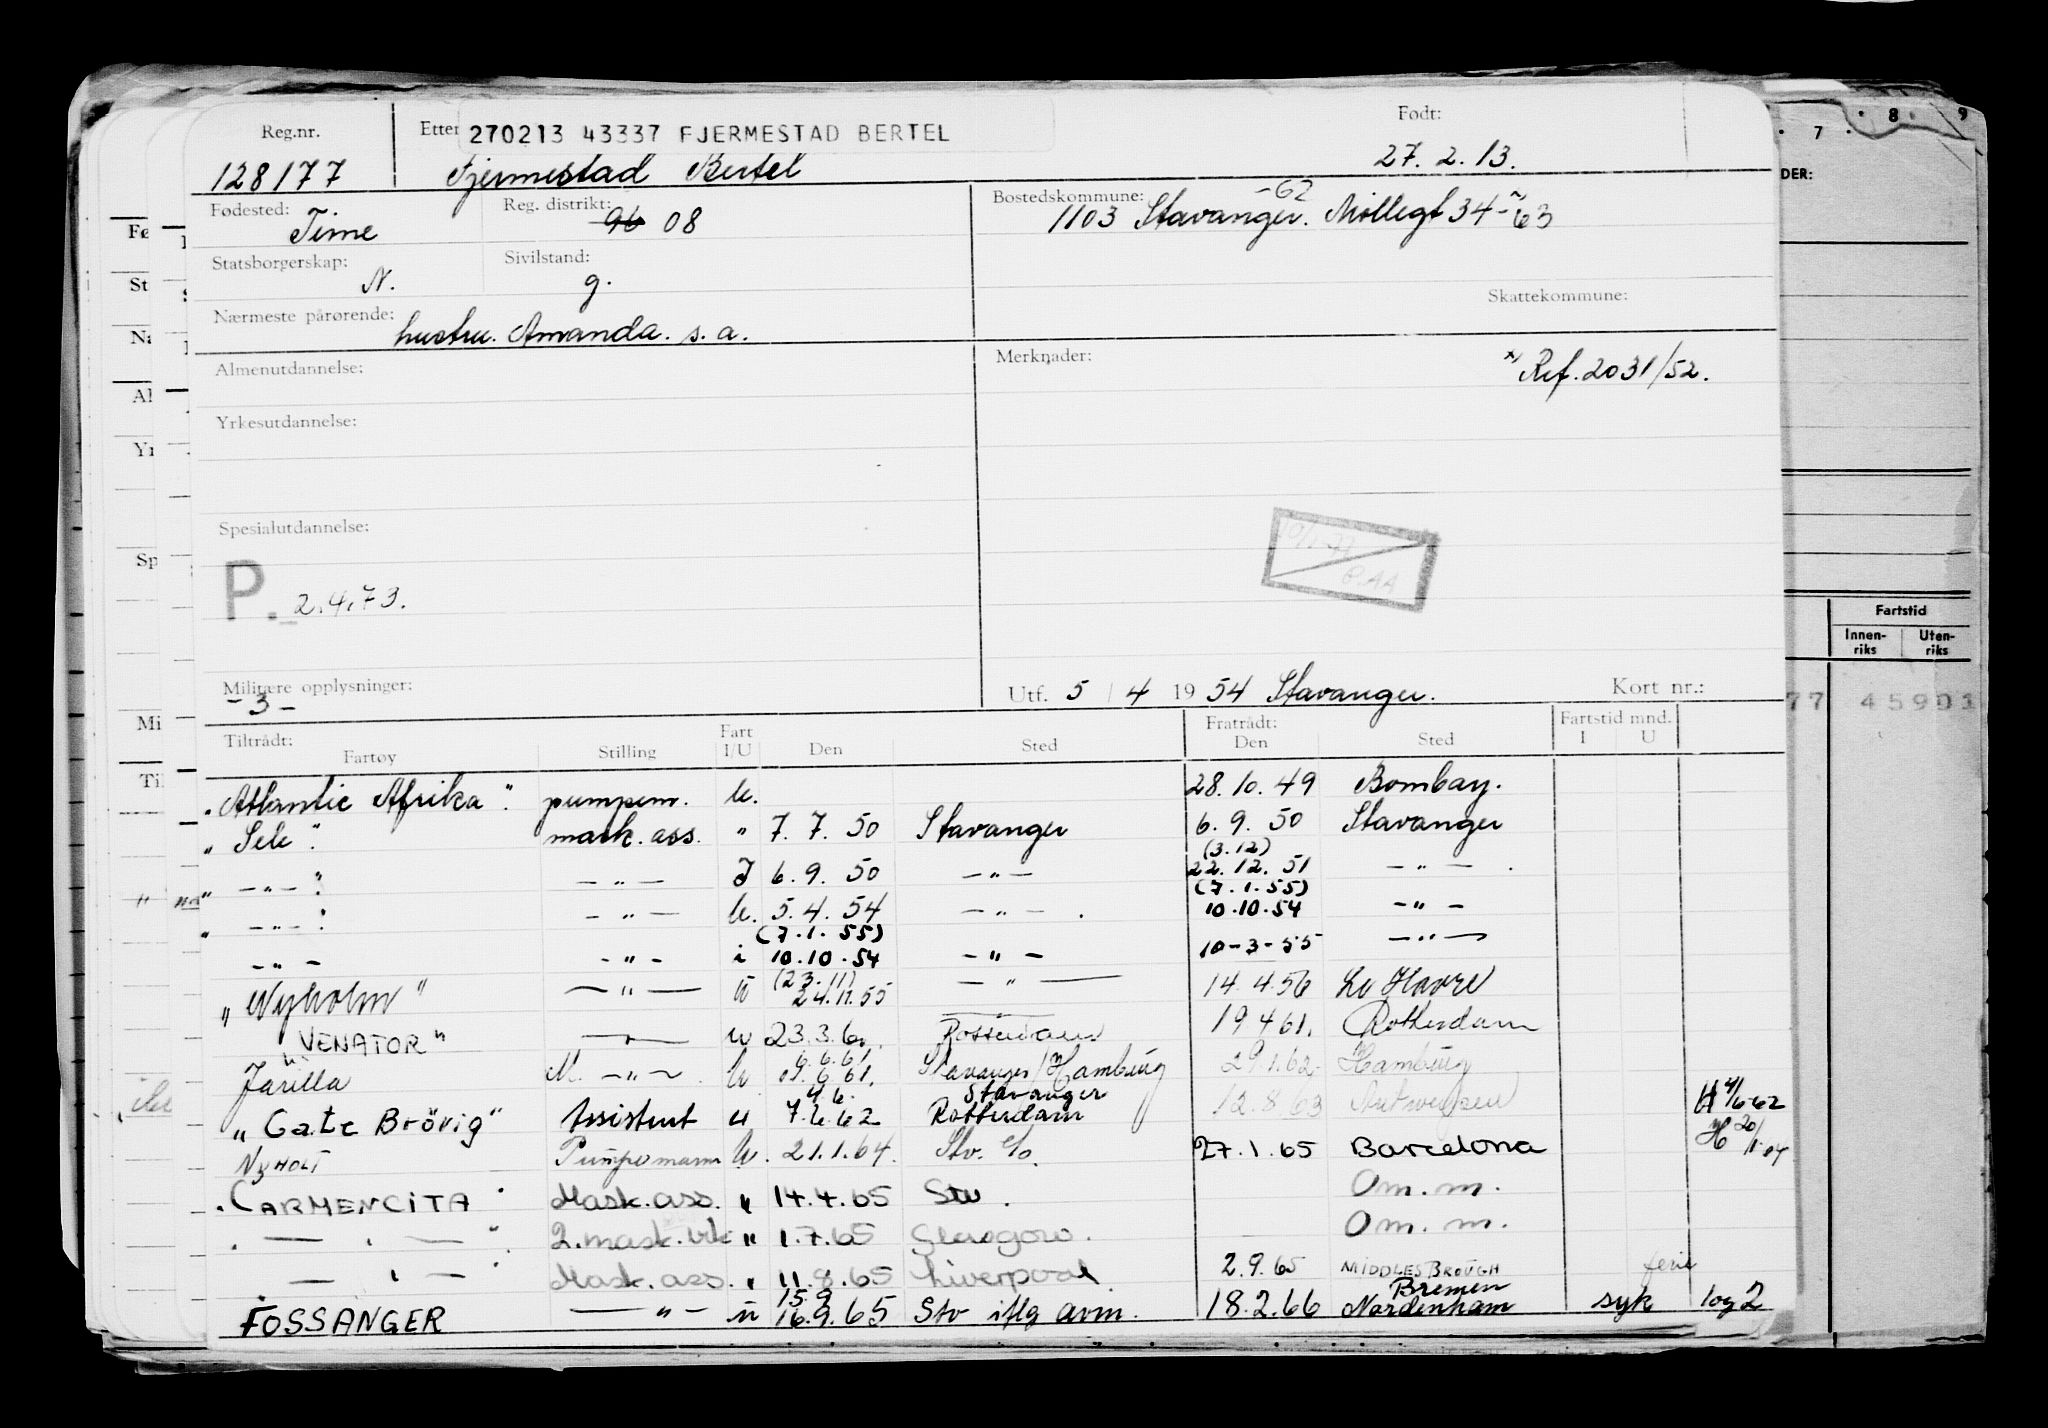 Reg.nr. Etter 270213 43337 FJERMESTAD BERTEL Født:
128177 Fjermestad Bertel 27. 2. 13.
Fødested: Time Reg. distrikt: 96 08 Bostedskommune: 1103 Stavanger. -62 Møllegt 34 - 63
Statsborgerskap: N. Sivilstand: g.
Skattekommune:
Nærmeste pårørende: hustru. Amanda. s. a.
Almenutdannelse: Merknader: x) Ref. 2031/52.
Yrkesutdannelse:
Spesialutdannelse:
P. 2.4.73.
Militære opplysninger: -3- Utf. 5 / 4 19 54 Stavanger. Kort nr.:
Tiltrådt: Fartøy Stilling Fart I/U Den Sted Fratrådt: Den Sted Fartstid mnd. I U
"Atlantic Afrika". pumpem. U. 28. 10. 49 Bombay.
"Sele". mask. ass. " 7. 7. 50 Stavanger 6. 9. 50 Stavanger
(3.12)
" — " — " — " — I 6. 9. 50 — " — 22. 12. 51 — " — .
(7.1.55)
" — " — " — " — U. 5. 4. 54 — " — . 10.10.54 — " —
(7.1.55)
— " — — " — i 10.10.54 — " — 10-3-55 — " —
(23.11)
"Nyholm" — " — U 24.11.55 — " — 14.4.56 Le Havre
"VENATOR" — " — U 23.3.61. Rotterdam 19 4 61. Rotterdam
6.6.61
Jarilla M. — " — U 09.6 61. Stavanger/Hamburg 29.1.62. Hamburg
4.6. Stavanger
"Cate Brövig" Assistent u 7.6.62 Rotterdam 12.8 63 Antwerpen H 4/6-62
NyHOLT Pumpemann U. 21.1.64. Stv. 27.1.65 Barcelona H 20/1-64
"CARMENCITA" Mask. ass. " 14.4.65 Stv. Om. m.
" — " — " 2. mask. " 1.7.65 Om. m.
— " — Mask. ass. " 11.8.65 Liverpool 2.9.65 MIDDLESBROUGH ferie
15.9 Bremen
FOSSANGER — " — u 16.9.65 Stv iflg avm. 18.2.66 Nordenham syk log 2
7 8 9
DER:
Fartstid
Innen-riks Uten-riks
77 45901
Fø
St
Næ
Al
Yr
Sp
Mi
Ti